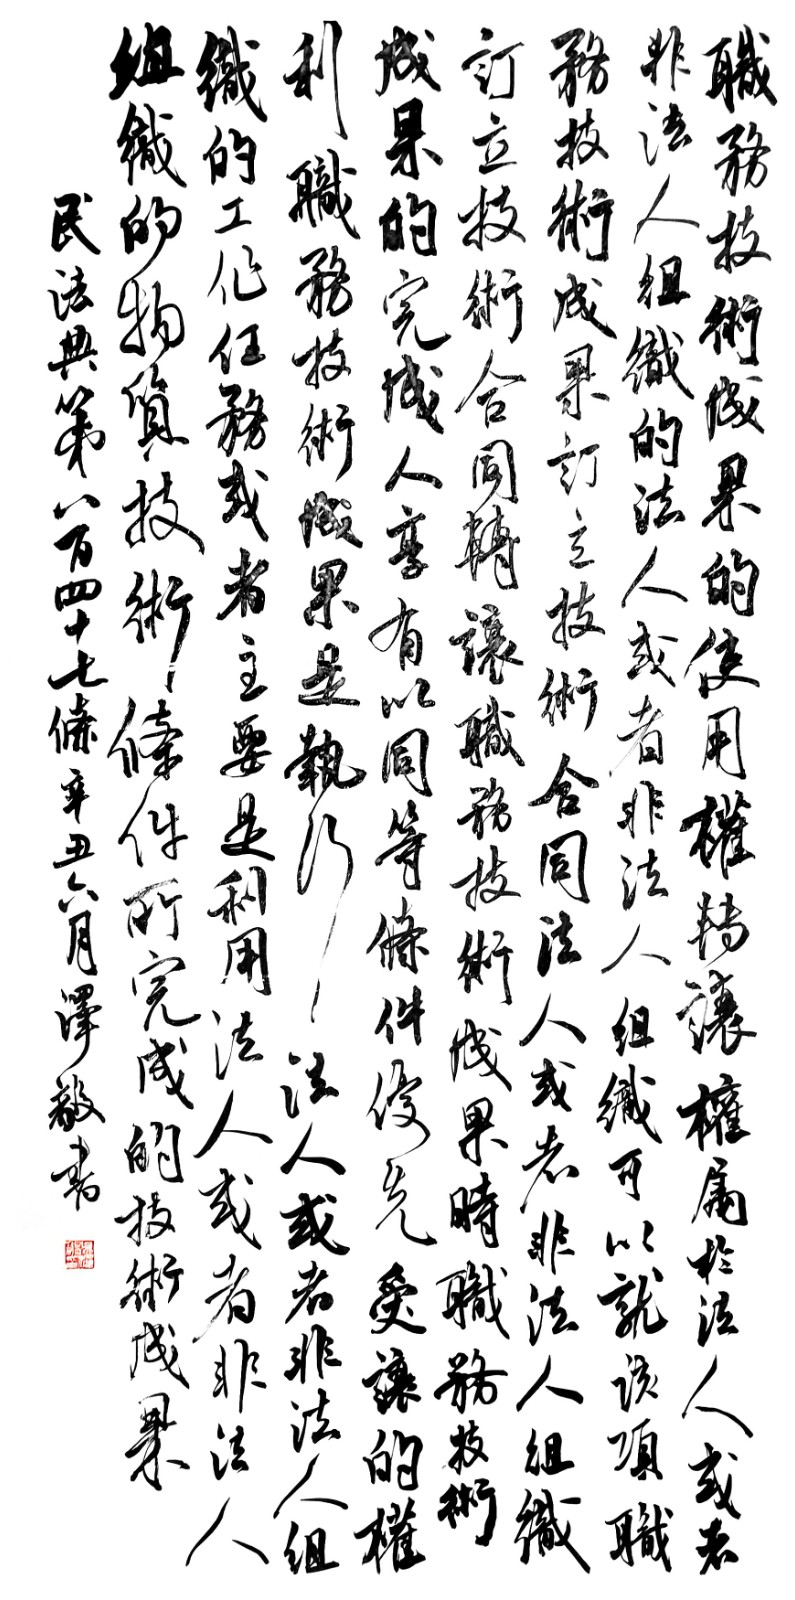 職務技術成果的使用權轉讓權屬於法人或者
非法人組織的法人或者非法人組織可以就該項職
務技術成果訂立技術合同法人或者非法人組織
訂立技術合同轉讓職務技術成果時職務技術
成果的完成人享有以同等條件優先受讓的權
利職務技術成果是執行法人或者非法人組
織的工作任務或者主要是利用法人或者非法人
組織的物質技術條件所完成的技術成果
民法典第八百四十七條辛丑六月澤毅書